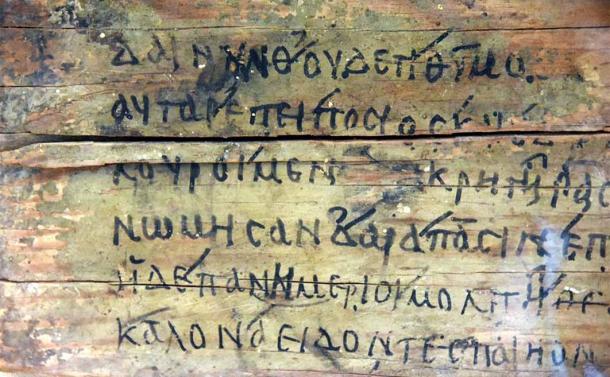 δαινννθουδεπθυμο
αυταρεπειποσιοσε
κουροιμεν κρητηρας
νωμησανδαραπασινεπ
ηδεπαννημεριοιμολπηθε
καλοναειδοντεσπαιηον